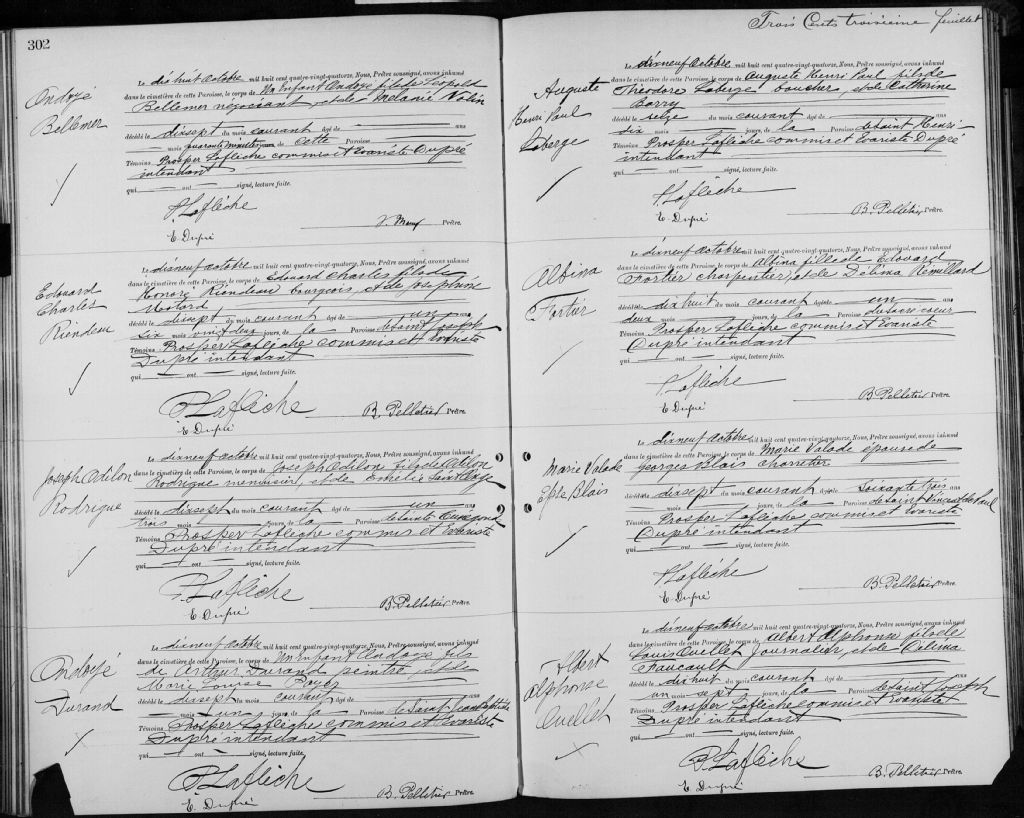 302
Ondoyé
Bellemer
Le dix huit octobre mil huit cent quatre-vingt-quatorze, Nous, Prêtre soussigné, avons inhumé
dans le cimetière de cette Paroisse, le corps de Un Infant Ondoye fils de Leopold
Bellemer négociant, et de Mélanie
décédé le dixsept du mois courant âgé de — ans
— mois quarante minutes de cette Paroisse —
Témoins Prosper Laflèche commis et Evariste Dupré
intendant
qui — ont — signé, lecture faite.
P. Laflèche
E. Dupré
Prêtre.
Edouard
Charles
Riendeau
Le dixneuf octobre mil huit cent quatre-vingt-quatorze, Nous, Prêtre soussigné, avons inhumé
dans le cimetière de cette Paroisse, le corps de Edouard Charles fils de
Honoré Riendeau bourgeois, et de Josephine
décédé le dixsept du mois courant âgé de un ans
six mois vingt deux jours, de la Paroisse de Saint Joseph
Témoins Prosper Laflèche commis et Evariste
Dupré intendant
qui — ont — signé, lecture faite.
P Laflèche
E Dupré
B. Pelletier Prêtre.
Joseph Odilon
Rodrigue
Le dixneuf octobre mil huit cent quatre-vingt-quatorze, Nous, Prêtre soussigné, avons inhumé
dans le cimetière de cette Paroisse, le corps de Joseph Odilon fils de Odilon
Rodrigue menuisier, et de
décédé le dixsept du mois courant âgé de un ans
trois mois — jours, de la Paroisse de Sainte Cunégonde
Témoins Prosper Laflèche commis et Evariste
Dupré intendant
qui — ont — signé, lecture faite.
P. Laflèche
E Dupré
B. Pelletier Prêtre.
Ondoyé
Durand
Le dixneuf octobre mil huit cent quatre-vingt-quatorze, Nous, Prêtre soussigné, avons inhumé
dans le cimetière de cette Paroisse, le corps de Un Infant Ondoye fils
de Arthur Durand peintre et de
Marie Louise
décédé le dixsept du mois courant âgé de — ans
— mois — un jours, de la Paroisse de Saint Jean Baptiste
Témoins Prosper Laflèche commis et Evariste
Dupré intendant
qui — ont — signé, lecture faite.
P Laflèche
E. Dupré
B. Pelletier Prêtre.
Trois Cents troisieme feuillet
Auguste
Henri Paul
Laberge
Le dixneuf octobre mil huit cent quatre-vingt-quatorze, Nous, Prêtre soussigné, avons inhumé
dans le cimetière de cette Paroisse, le corps de Auguste Henri Paul fils de
Théodore Laberge boucher, et de Catherine
Barry
décédé le seize du mois courant âgé de — ans
six mois — jours, de la Paroisse de Saint Henri
Témoins Prosper Laflèche commis et Evariste Dupré
intendant
qui — ont — signé, lecture faite.
P. Laflèche
E. Dupré
B. Pelletier Prêtre.
Albina
Fortier
Le dixneuf octobre mil huit cent quatre-vingt-quatorze, Nous, Prêtre soussigné, avons inhumé
dans le cimetière de cette Paroisse, le corps de Albina fille de Edouard
Fortier charpentier, et de Délima Rémillard
décédée le dix huit du mois courant âgée de un ans
deux mois — jours, de la Paroisse du Sacré coeur
Témoins Prosper Laflèche commis et Evariste
Dupré intendant
qui — ont — signé, lecture faite.
P. Laflèche
E. Dupré
B Pelletier Prêtre.
Marie Valade
Epse Blais
Le dixneuf octobre mil huit cent quatre-vingt-quatorze, Nous, Prêtre soussigné, avons inhumé
dans le cimetière de cette Paroisse, le corps de Marie Valade épouse de
Georges Blais charretier
décédée le dixsept du mois courant âgée de soixante trois ans
— mois — jours, de la Paroisse de Saint Vincent de Paul
Témoins Prosper Laflèche commis et Evariste
Dupré intendant
qui — ont — signé, lecture faite.
P Laflèche
E. Dupré
B. Pelletier Prêtre.
Albert
Alphonse
Ouellet
Le dixneuf octobre mil huit cent quatre-vingt-quatorze, Nous, Prêtre soussigné, avons inhumé
dans le cimetière de cette Paroisse, le corps de Albert Alphonse fils de
Louis Ouellet journalier, et de Délima
Faucault
décédé le dix huit du mois courant âgé de — ans
un mois sept jours, de la Paroisse de Saint Joseph
Témoins Prosper Laflèche commis et Evariste
Dupré intendant
qui — ont — signé, lecture faite.
P Laflèche
E Dupré
B. Pelletier Prêtre.